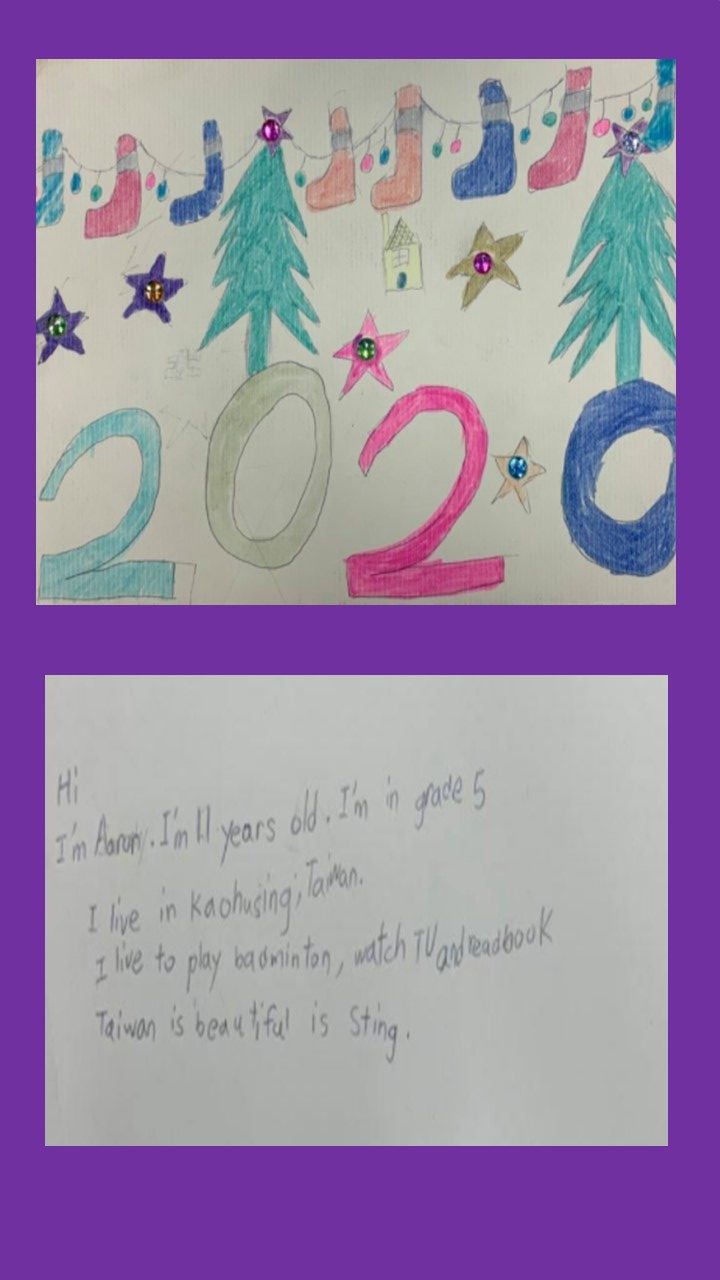 2020
Hi
I'm Aaron. I'm 11 years old. I'm in grade 5
I live in Kaohusing, Taiwan.
I live to play badminton, watch TV and read book
Taiwan is beautiful is Sting.